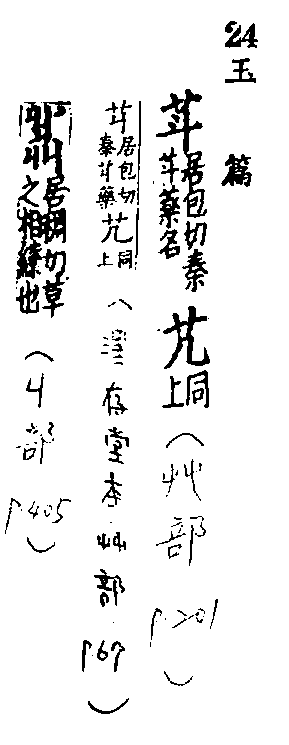 24
玉篇
芁居包切秦芁藥名艽同上（艸部 p.201）
芁居包切秦芁藥艽同上（澤存堂本艸部 p.67）
居稠切草之相繚也（丩部 p.405）